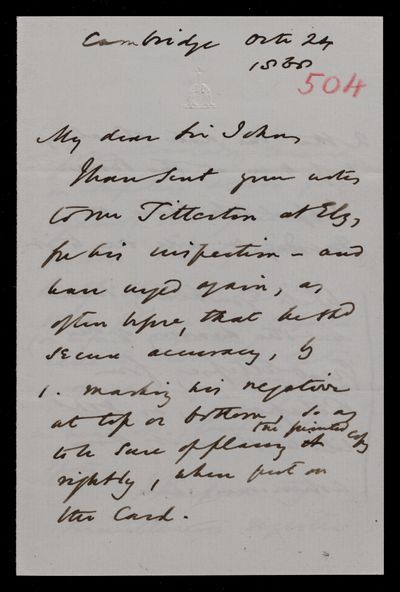 Cambridge Octr 24
1868
504
My dear Sir John,
I have sent your notes
to Mr Titterton at Ely,
for his inspection - and
have urged again, as
often before, that he shd
secure accuracy, by
1. marking his negative
at top or bottom, so as
to be sure of placing it the printed copy
rightly, when put on
the Card.